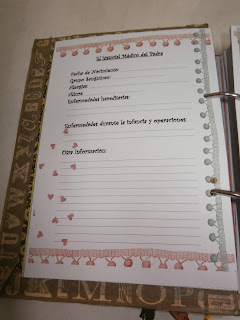 El Historial Médico del Padre
Fecha de Nacimiento:
Grupo Sanguíneo:
Alergias:
Altura:
Enfermedades hereditarias:
Enfermedades durante la infancia y operaciones:
Otra información: